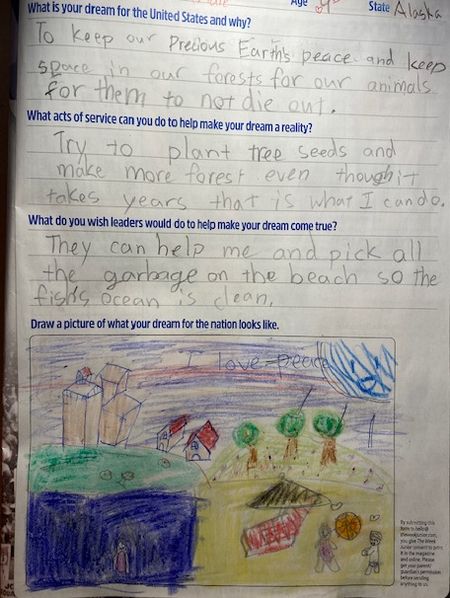 Age
State Alaska
What is your dream for the United States and why?
To keep our Precious Earth's peace and keep
space in our forests for our animals
for them to not die out.
What acts of service can you do to help make your dream a reality?
Try to plant tree seeds and
make more forest even though it
takes years that is what I can do.
What do you wish leaders would do to help make your dream come true?
They can help me and pick all
the garbage on the beach so the
fish's ocean is clean.
Draw a picture of what your dream for the nation looks like.
I love peace
By submitting this
form to hello@
theweekjunior.com,
you give The Week
Junior consent to print
it in the magazine
and online. Please
get your parent/
guardian's permission
before sending
anything to us.